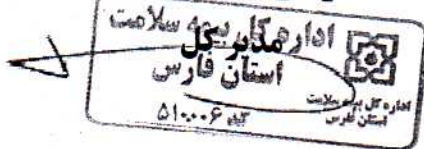 اداره کل بیمه سلامت
مدیر کل
استان فارس
اداره کل بیمه سلامت
استان فارس
کد ۵۱۰۰۰۶